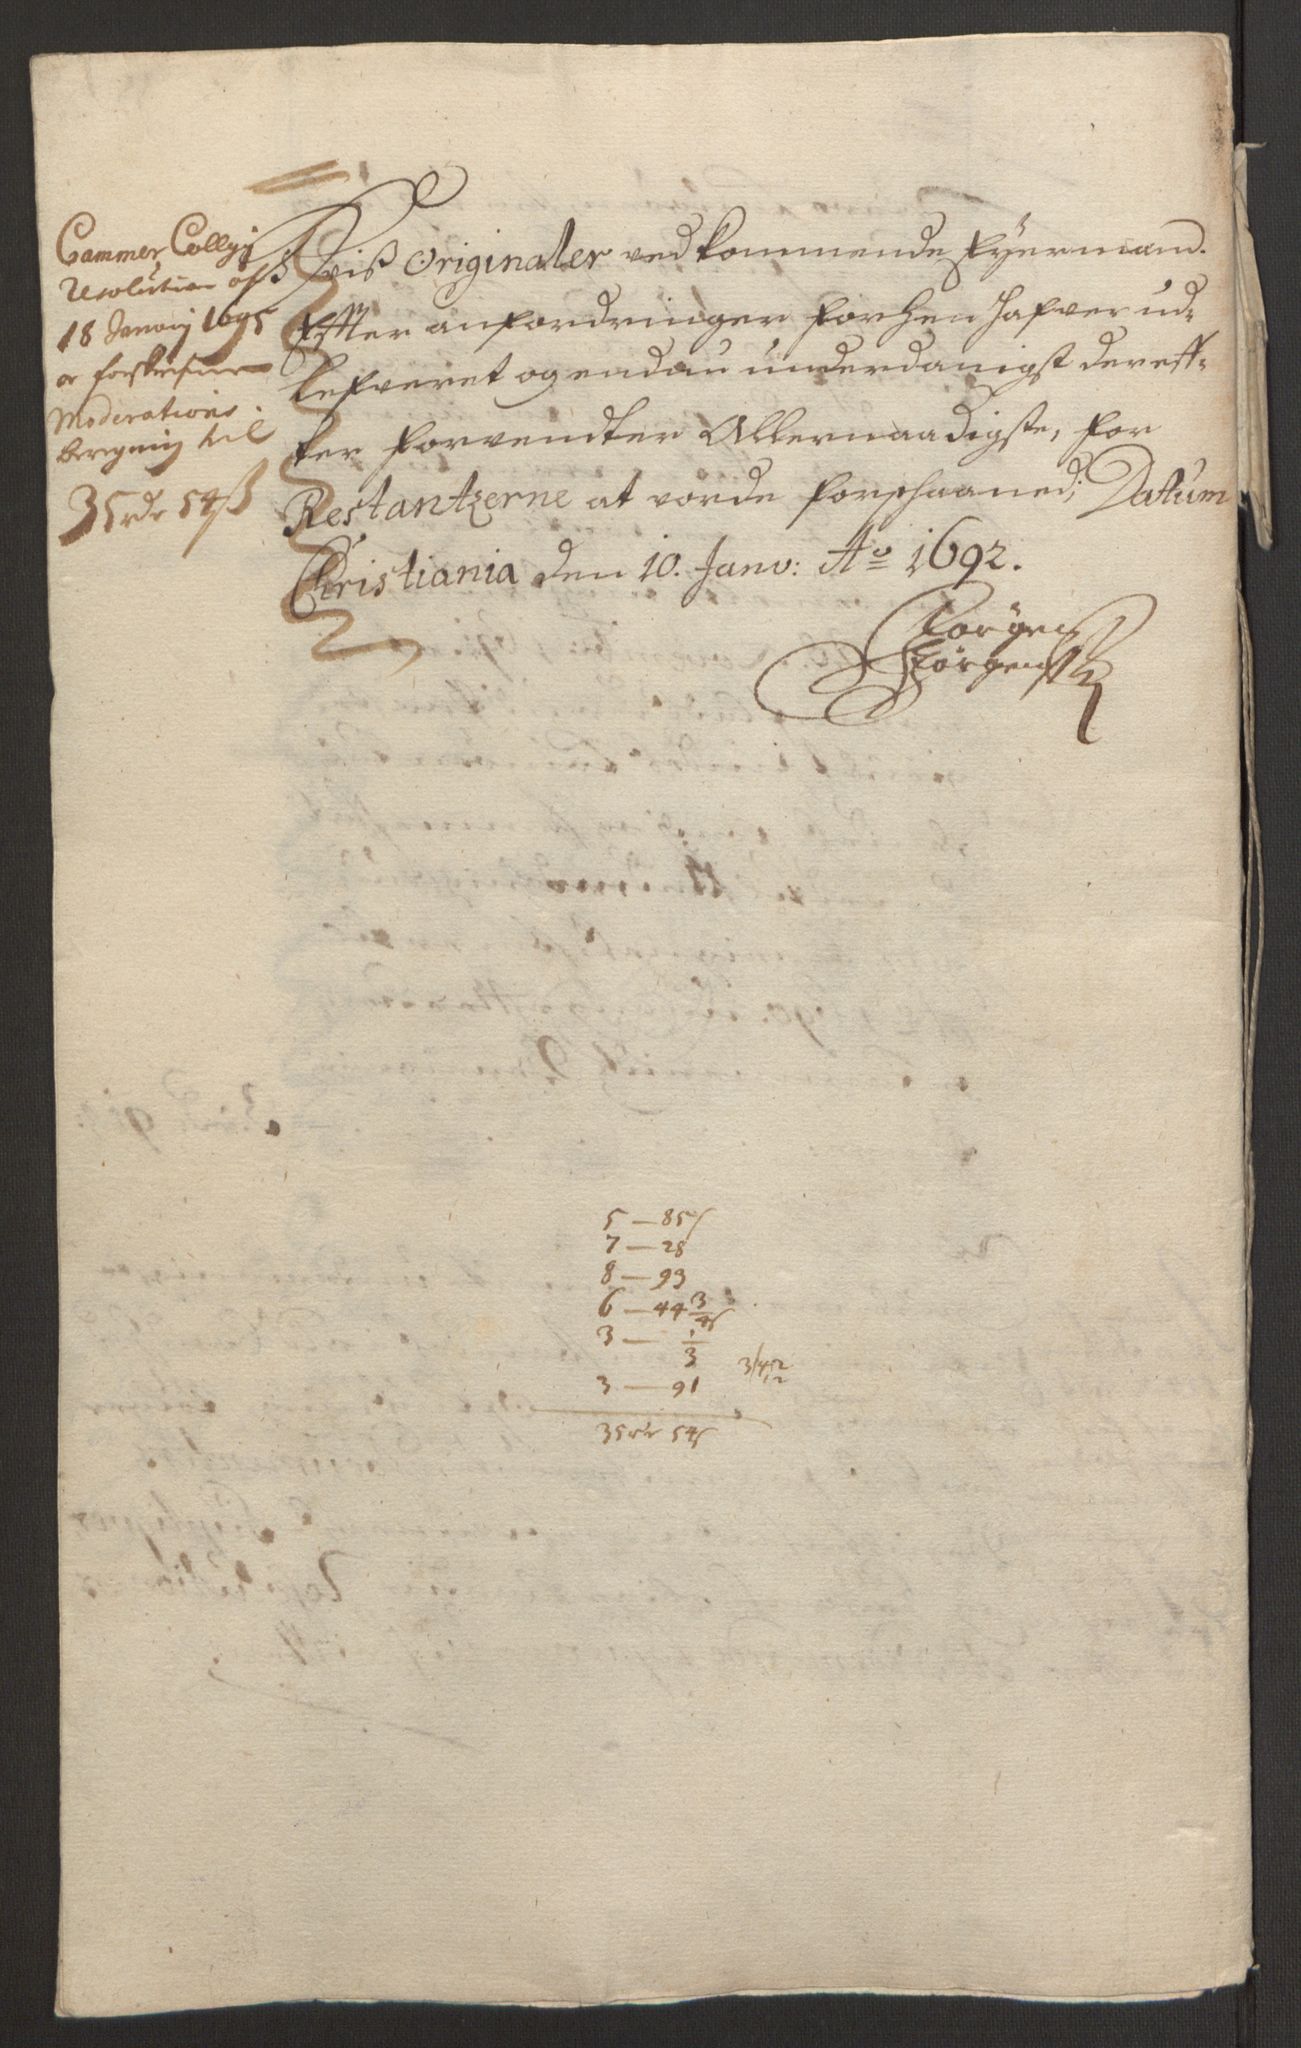 Cammer Collgij
Resolution aff
18 Janvarij 1695
er forskrefne
Moderations
beregning til
35 rdr 54 ß
Hviß Originaler vedkommende Fyermand.
Effter anfordringer forhen hafver ud-
lefveret og endnu underdanigst dereff-
ter forventer Allernaadigste, for
Restantzerne at vorde forschaaned; Datum
Christiania den 10. Janv: Ao 1692.
Jörgen
Jörgenß
5 — 85 ß
7 — 28
8 — 93
6 — 44 3/4 ß
3 — 1/3
3 — 91
35 rdr 54 ß